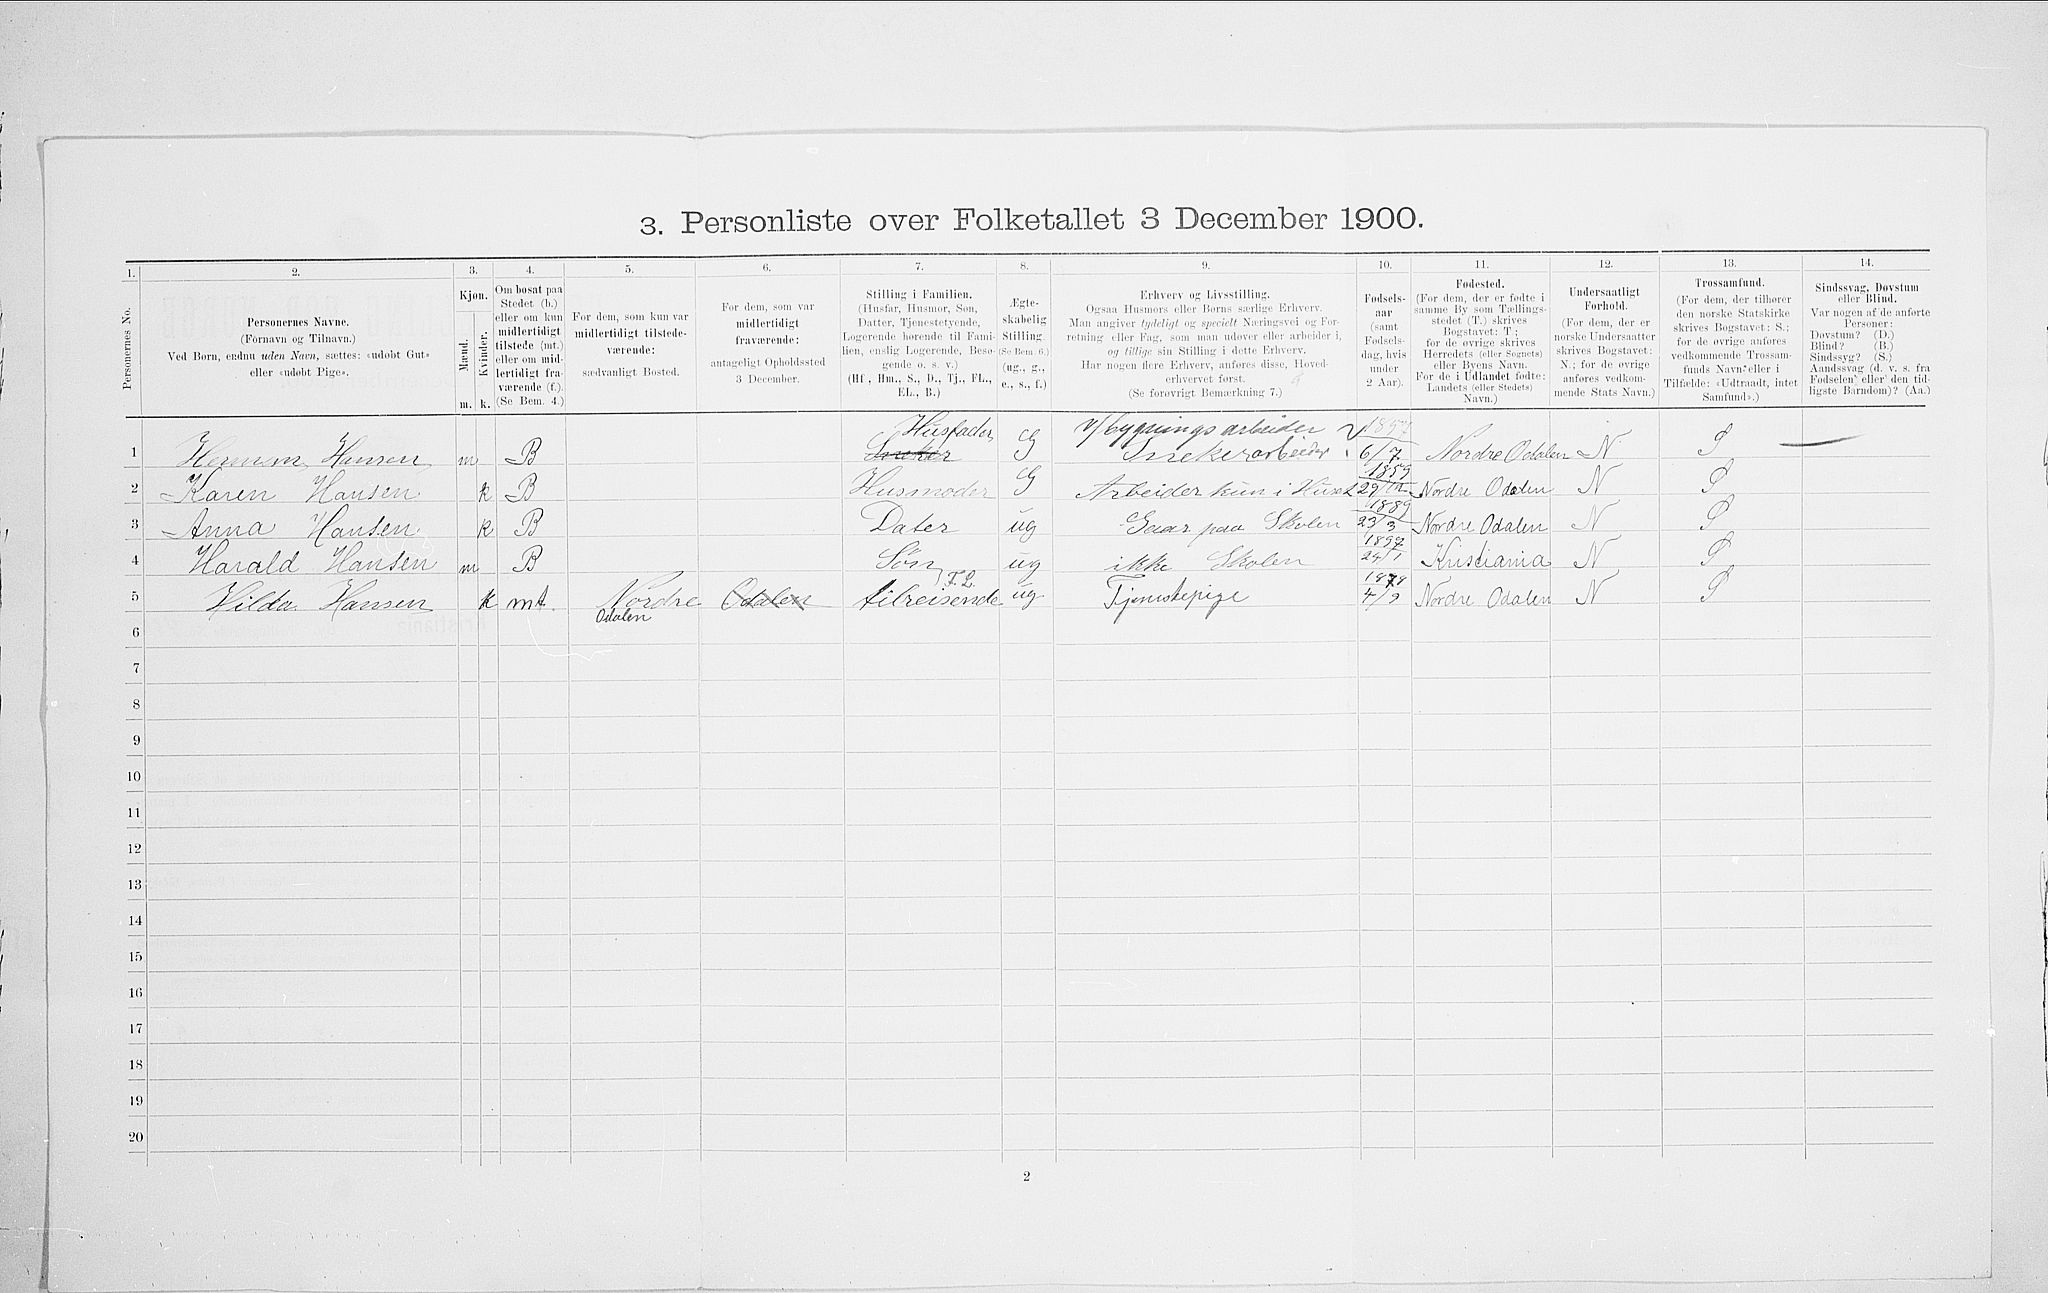 3. Personliste over Folketallet 3 December 1900.
1. 2. 3. 4. 5. 6. 7. 8. 9. 10. 11. 12. 13. 14.
Personernes No.
Personernes Navne.
(Fornavn og Tilnavn.)
Ved Børn, endnu uden Navn, sættes: «udøbt Gut»
eller «udøbt Pige».
Kjøn.
Mænd.
Kvinder.
m. k.
Om bosat paa
Stedet (b.)
eller om kun
midlertidigt
tilstede (mt.)
eller om mid-
lertidigt fra-
værende (f.).
(Se Bem. 4.)
For dem, som kun var
midlertidigt tilstede-
værende:
sædvanligt Bosted.
For dem, som var
midlertidigt
fraværende:
antageligt Opholdssted
3 December.
Stilling i Familien.
(Husfar, Husmor, Søn,
Datter, Tjenestetyende,
Logerende hørende til Fami-
lien, enslig Logerende, Besø-
gende o. s. v.)
(Hf, Hm., S., D., Tj., FL.,
EL., B.)
Ægte-
skabelig
Stilling.
(Se Bem. 6.)
(ug., g.,
e., s., f.)
Erhverv og Livsstilling.
Ogsaa Husmors eller Børns særlige Erhverv.
Man angiver tydeligt og specielt Næringsvei og For-
retning eller Fag, som man udøver eller arbeider i,
og tillige sin Stilling i dette Erhverv.
Har nogen flere Erhverv, anføres disse, Hoved-
erhvervet først.
(Se forøvrigt Bemærkning 7.)
Fødsels-
aar
(samt
Fødsels-
dag, hvis
under
2 Aar).
Fødested.
(For dem, der er fødte i
samme By som Tællings-
stedet (T.) skrives
Bogstavet: T.;
for de øvrige skrives
Herredets (eller Sognets)
eller Byens Navn.
For de i Udlandet fødte:
Landets (eller Stedets)
Navn.)
Undersaatligt
Forhold.
(For dem, der er
norske Undersaatter
skrives Bogstavet:
N.; for de øvrige
anføres vedkom-
mende Stats Navn.)
Trossamfund.
(For dem, der tilhører
den norske Statskirke
skrives Bogstavet: S.;
for de øvrige anføres
vedkommende Trossam-
funds Navn eller i
Tilfælde: «Udtraadt, intet
Samfund».)
Sindssvag, Døvstum
eller Blind.
Var nogen af de anførte
Personer:
Døvstum? (D.)
Blind? (B.)
Sindssyg? (S.)
Aandssvag (d. v. s. fra
Fødselen eller den tid-
ligste Barndom)? (Aa.)
Husfader Bygningsarbeider
1 Herman Hansen m B Sneker G Snekerarbeider 6/7 Nordre Odalen N S —
1859
2 Karen Hansen k B Husmoder G Arbeider kun i Huset Nordre Odalen N S
1889
3 Anna Hansen k B Dater ug Gaar paa Skolen 23/3 Nordre Odalen N S
1897
4 Harald Hansen m B Søn ug ikke Skolen 24/1 Kristiania N S
F.L. 1878
5 Hilda Hansen k mt. Nordre Odalen tilreisende ug Tjenestepige 4/9 Nordre Odalen N S
Odalen
6
7
8
9
10
11
12
13
14
15
16
17
18
19
20
2